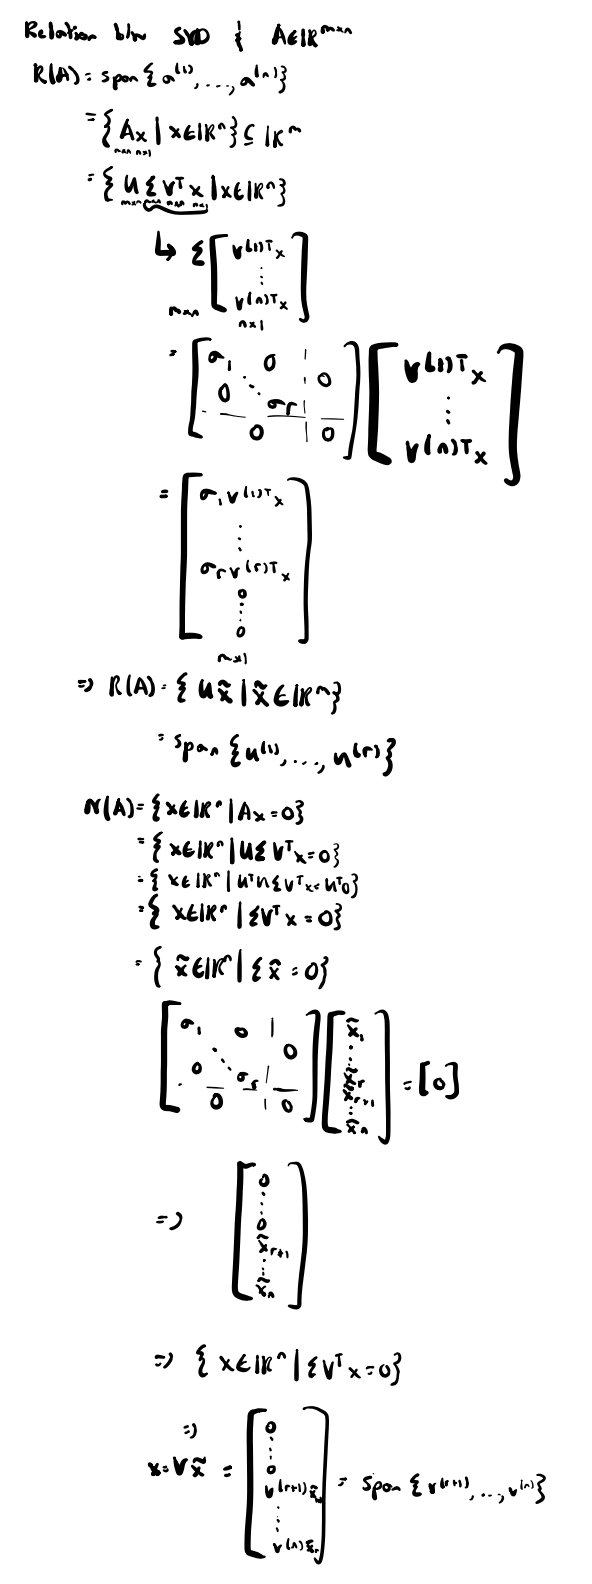 Relation b/w SVD & A∈ℝ^{m×n}
R(A) = span{a^{(1)}, ..., a^{(n)}}
= {Ax | x∈ℝ^n} ⊆ ℝ^m
m×n n×1
= {U Σ V^T x | x∈ℝ^n}
m×m m×n n×n n×1
↳ Σ [ v^{(1)T} x
⋮
v^{(n)T} x ]
m×n n×1
= [ σ_1 0 | 0
0 ⋱ σ_r |
0 | 0 ] [ v^{(1)T} x
⋮
v^{(n)T} x ]
= [ σ_1 v^{(1)T} x
⋮
σ_r v^{(r)T} x
0
⋮
0 ]
m×1
⇒ R(A) = {U x̃ | x̃ ∈ ℝ^m}
= span{u^{(1)}, ..., u^{(r)}}
N(A) = {x∈ℝ^n | Ax = 0}
= {x∈ℝ^n | UΣV^T x = 0}
= {x∈ℝ^n | U^T UΣV^T x = U^T 0}
= {x∈ℝ^n | ΣV^T x = 0}
= {x̃∈ℝ^n | Σ x̃ = 0}
[ σ_1 0 | 0
0 ⋱ σ_r |
0 | 0 ] [ x̃_1
⋮
x̃_r
x̃_{r+1}
⋮
x̃_n ] = [0]
⇒ [ 0
⋮
0
x̃_{r+1}
⋮
x̃_n ]
⇒ {x∈ℝ^n | ΣV^T x = 0}
⇒
x = V x̃ = [ 0
⋮
0
v^{(r+1)}
⋮
v^{(n)} ] = span{v^{(r+1)}, ..., v^{(n)}}